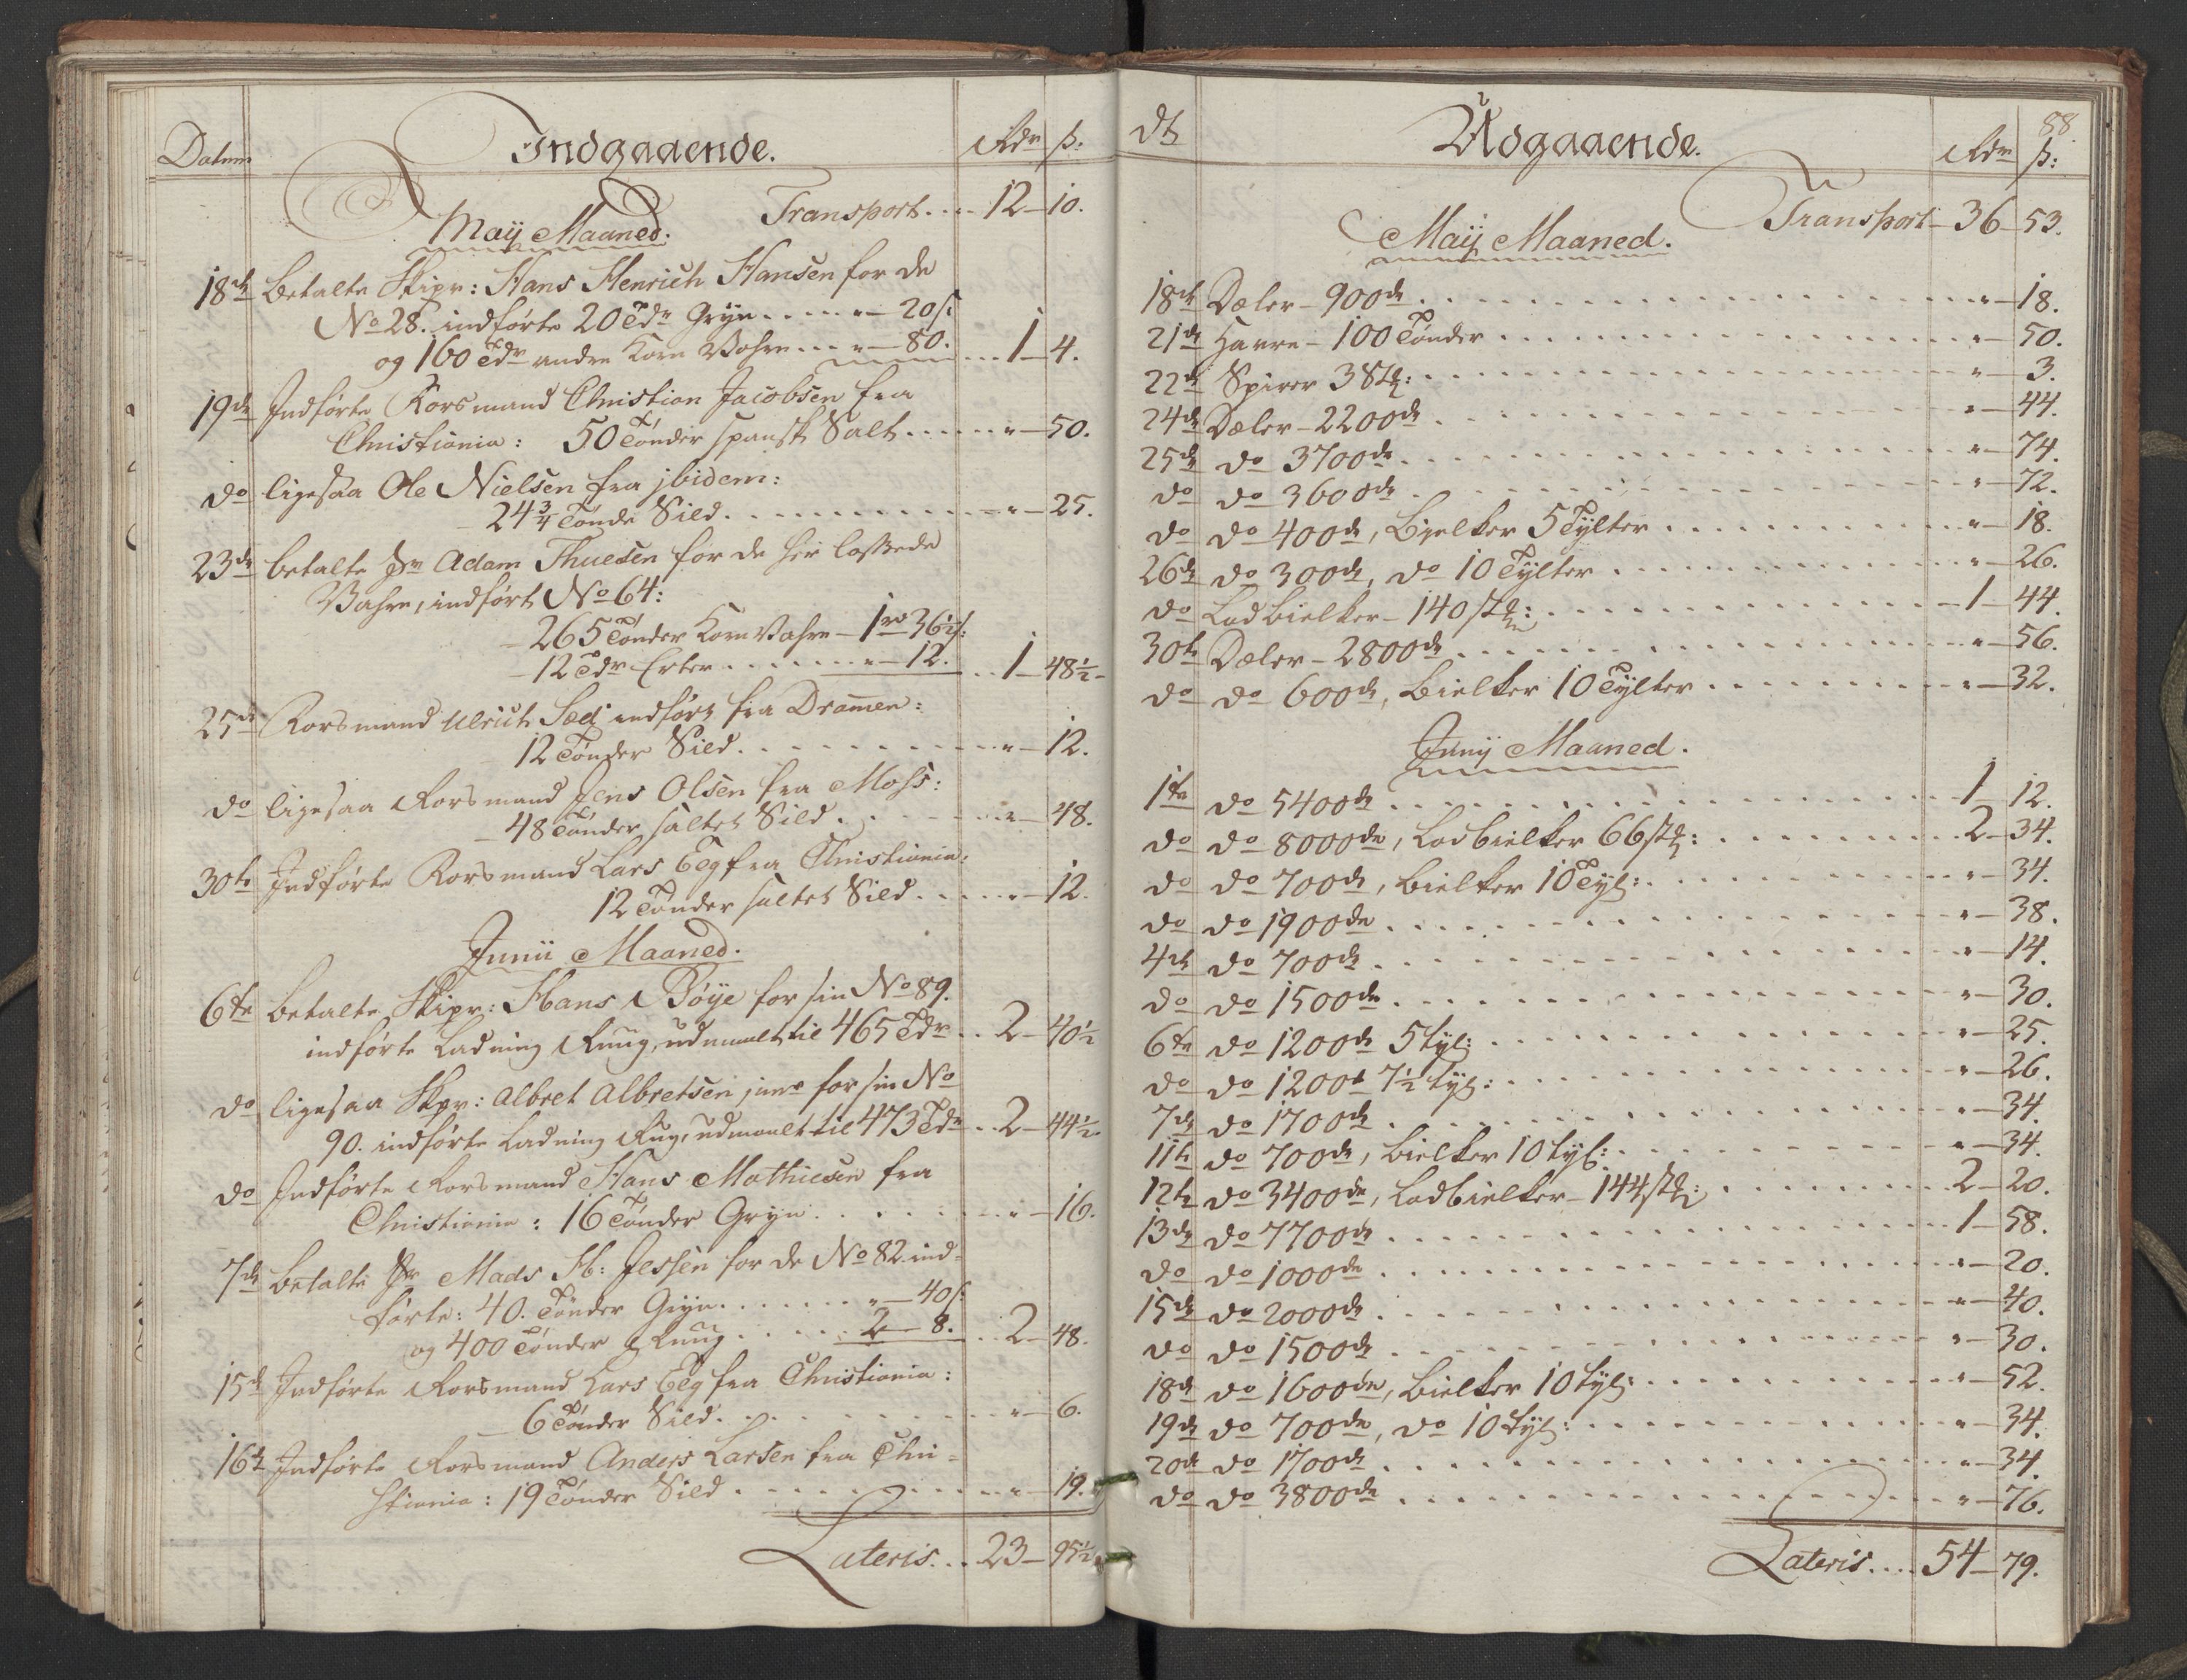 Datum Indgaaende. Rdr ß:
Transport.... 12 - 10.
Maij Maaned.
18de Betalte Skipr: Hans Henrich Hansen for de
No 28. indførte 20 Tdr Gryn..... " - 20 ß
og 160 Tdr andre Korn Vahre... " - 80. ... 1 - 4.
19de Indførte Rorsmand Christian Jacobsen fra
Christiania: 50 Tønder spansk Salt...... " - 50.
do ligesaa Ole Nielsen fra jbidem:
- 24 3/4 Tønde Sild............ " - 25.
23de betalte Hr Adam Thuesen for de her lossede
Vahre, indført No 64:
- 265 Tønder Korn Vahre - 1 rd 36 1/2 ß:
- 12 Tdr Erter....... " - 12. .. 1 - 48 1/2 -
25de Rorsmand Ulrich Sæd indført fra Dramen:
12 Tønder Sild........... " - 12.
do ligesaa Rorsmand Jens Olsen fra Moss:
- 48 Tønder saltet Sild....... " - 48.
30te Indførte Rorsmand Lars Eeg fra Christiania:
12 Tønder saltet Sild..... " - 12.
Junii Maaned.
6te betalte Skipr: Hans Bøye for sin No 89.
indførte Ladning Ruug, udmaalt til 465 Tdr .. 2 - 40 1/2
do ligesaa Skpr: Albret Albretsen junr for sin No
90. indførte Ladning Rug, udmaalt til 473 Tdr .. 2 - 44 1/2
do Indførte Rorsmand Hans Mathiesen fra
Christiania: 16 Tønder Gryn......... " - 16.
7de betalte Hr Mads H: Jessen for de No 82 ind=
førte: 40. Tønder Gryn....... " - 40 ß:
og 400 Tønder Ruug..... 2 - 8. .. 2 - 48.
15de Indførte Rorsmand Lars Eeg fra Christiania:
- 6 Tønder Sild............ " - 6.
16de Indførte Rorsmand Anders Larsen fra Chri=
stiania: 19 Tønder Sild........... " - 19.
Lateris... 23 - 95 1/2
88.
Dt Udgaaende. Rdr ß:
Transport - 36 - 53.
Maij Maaned.
18de Dæler - 900de............ " - 18.
21de Havre - 100 Tønder............ " - 50.
22de Spirer 3 Stk:............ " - 3.
24de Dæler - 2200de............ " - 44.
25de do 3700de............ " - 74.
do do 3600de............ " - 72.
do do 400de, Bjelker 5 Tylter............ " - 18.
26de do 300de, do 10 Tylter............ " - 26.
do Ladbielker - 140 stk:............ 1 - 44.
30te Dæler - 2800de............ " - 56.
do do 600de, Bielker 10 Tylter............ " - 32.
Junij Maaned.
1te do 5400de............ 1 - 12.
do do 8000de, Ladbielker 66 stk:............ 2 - 34.
do do 700de, Bielker 10 Tyl:............ " - 34.
do do 1900de............ " - 38.
4de do 700de............ " - 14.
do do 1500de............ " - 30.
6te do 1200de 5 tyl:............ " - 25.
do do 1200de 7 1/2 tyl:............ " - 26.
7de do 1700de............ " - 34.
11te do 700de, Bielker 10 tyl:............ " - 34.
12te do 3400de, Ladbielker - 144 stk:............ 2 - 20.
13de do 7700de............ 1 - 58.
do do 1000de............ " - 20.
15de do 2000de............ " - 40.
do do 1500de............ " - 30.
18de do 1600de, Bielker 10 tyl:............ " - 52.
19de do 700de, do 10 tyl:............ " - 34.
20de do 1700de............ " - 34.
do do 3800de............ " - 76.
Lateris.... 54 - 79.